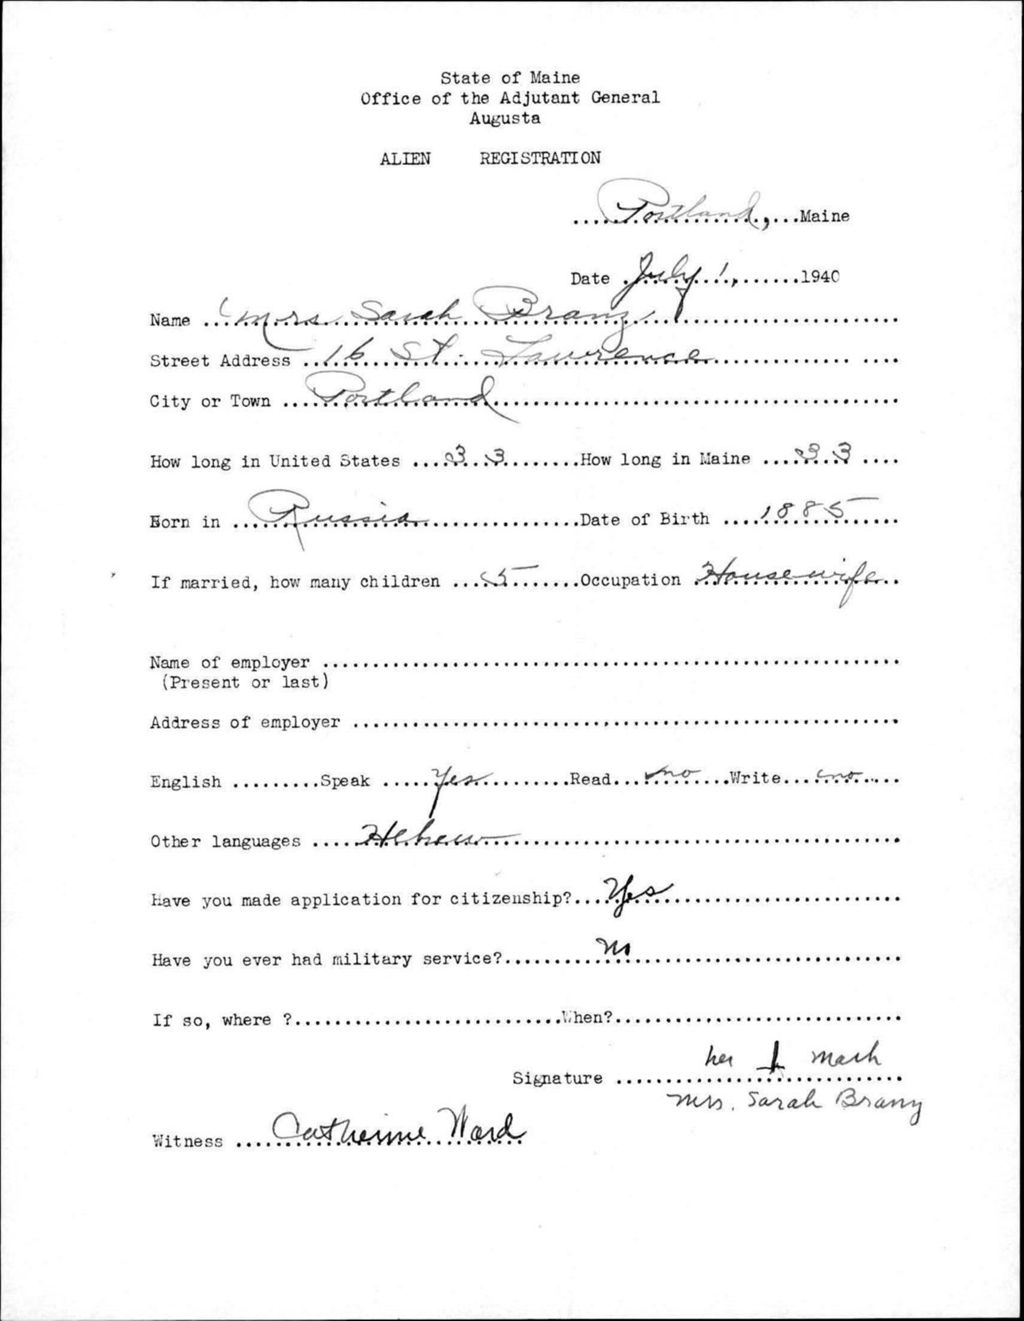 State of Maine
Office of the Adjutant General
Augusta
ALIEN REGISTRATION
Portland, Maine
Date July 1, 1940
Name Mrs. Sarah
Street Address 16 St. Lawrence
City or Town Portland
How long in United States 33 How long in Maine 33
Born in Russia Date of Birth 1885
If married, how many children 5 Occupation Housewife
Name of employer
(Present or last)
Address of employer
English Speak Yes Read no Write no
Other languages Hebrew
Have you made application for citizenship? Yes
Have you ever had military service? No
If so, where ? When?
her mark
Signature
Mrs. Sarah
Witness Catherine Ward